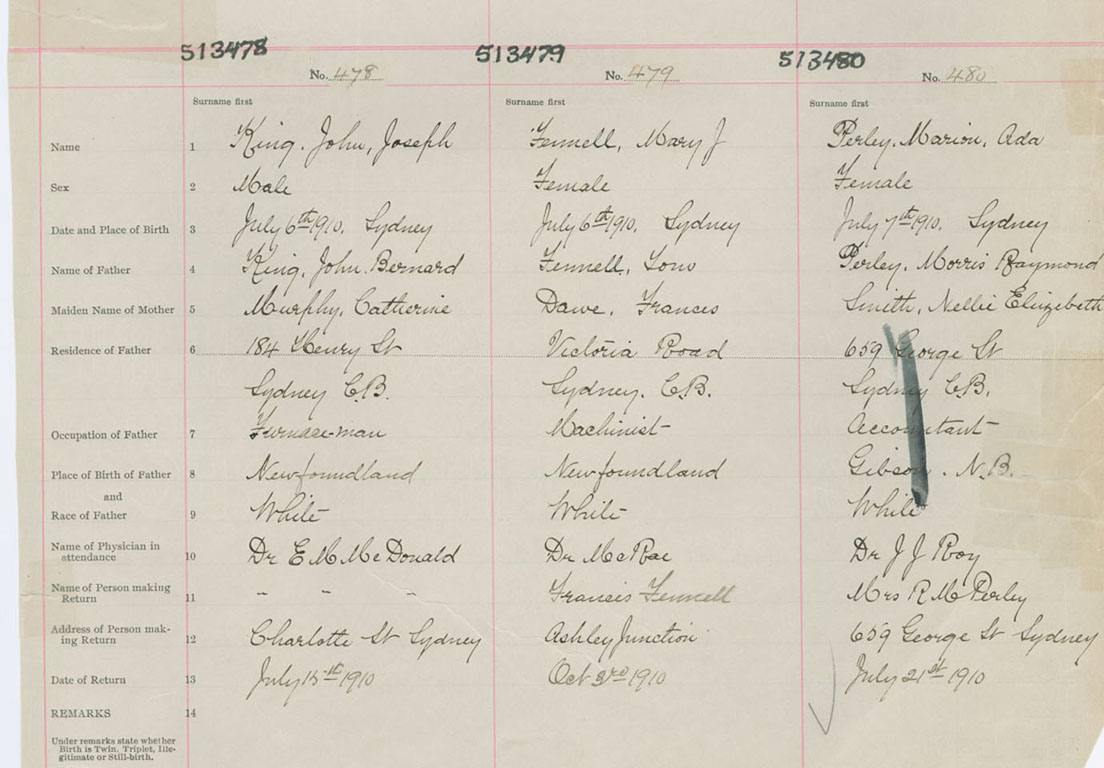 513478 513479 513480
No. 478 No. 479 No. 480
Surname first Surname first Surname first
Name 1 King. John, Joseph Fennell, Mary J Perley. Marion, Ada
Sex 2 Male Female Female
Date and Place of Birth 3 July 6th 1910. Sydney July 6th 1910. Sydney July 7th 1910. Sydney
Name of Father 4 King, John. Bernard Fennell, Tom Perley. Morris Raymond
Maiden Name of Mother 5 Murphy. Catherine Dawe. Frances Smith, Nellie Elizebeth
Residence of Father 6 184 Henry St Victoria Road 659 George St
Sydney C.B. Sydney. C.B. Sydney C.B.
Occupation of Father 7 Furnace-man Machinist Accountant
Place of Birth of Father 8 Newfoundland Newfoundland Gibson. N.B.
and
Race of Father 9 White White White
Name of Physician in
attendance 10 Dr E M McDonald Dr McRae Dr J J Roy
Name of Person making
Return 11 " " " Francis Fennell Mrs R M Perley
Address of Person mak-
ing Return 12 Charlotte St Sydney Ashley Junction 659 George St Sydney
Date of Return 13 July 15th 1910 Oct 3rd 1910 July 21st 1910
REMARKS 14
Under remarks state whether
Birth is Twin, Triplet, Ille-
gitimate or Still-birth.